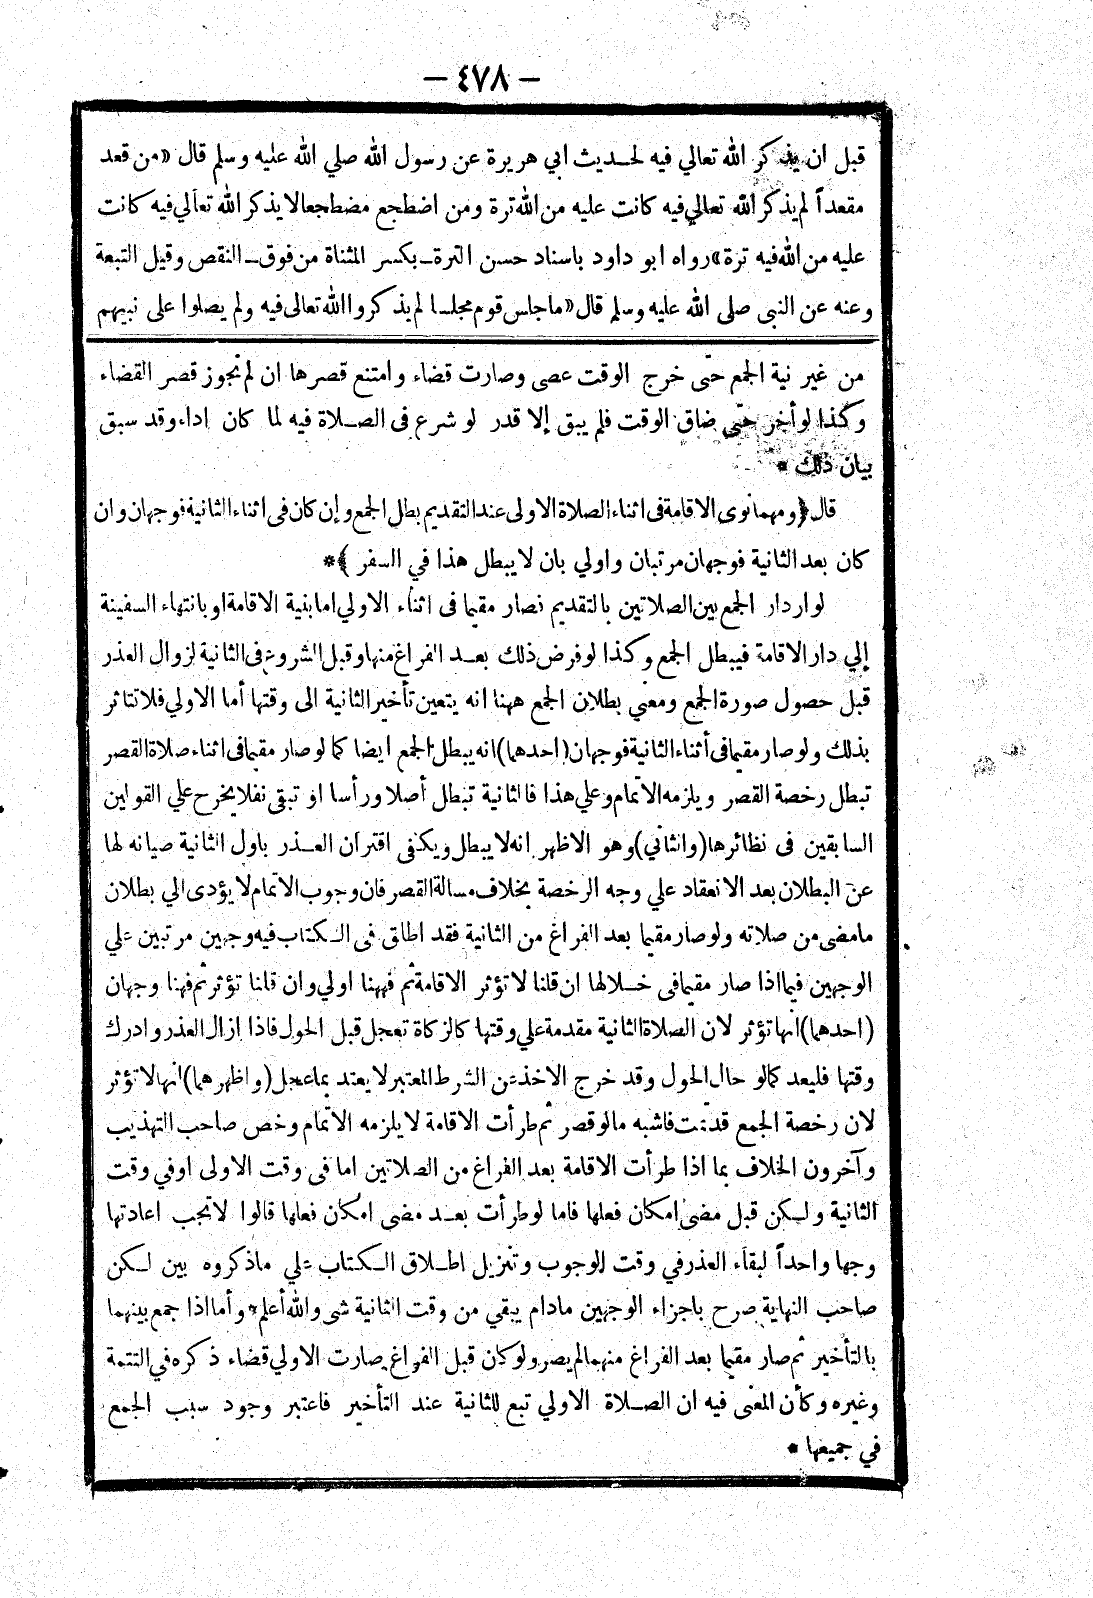 — ٤٧٨ —
قبل ان يذكر الله تعالي فيه لحديث ابي هريرة عن رسول الله صلي الله عليه وسلم قال «من قعد
مقعداً لم يذكر الله تعالي فيه كانت عليه من الله ترة ومن اضطجع مضطجعا لا يذكر الله تعالي فيه كانت
عليه من الله فيه ترة» رواه ابو داود باسناد حسن الترة ـ بكسر المثناة من فوق ـ النقص وقيل التبعة
وعنه عن النبى صلى الله عليه وسلم قال «ما جلس قوم مجلسا لم يذكروا الله تعالى فيه ولم يصلوا على نبيهم
من غير نية الجمع حتى خرج الوقت عصى وصارت قضاء وامتنع قصرها ان لم نجوز قصر القضاء
وكذا لو أخر حتى ضاق الوقت فلم يبق إلا قدر لو شرع فى الصلاة فيه لما كان اداء وقد سبق
بيان ذلك *
قال ﴿ومهما نوى الاقامة فى اثناء الصلاة الاولى عند التقديم بطل الجمع وإن كان فى اثناء الثانية فوجهان وان
كان بعد الثانية فوجهان مرتبان واولي بان لا يبطل هذا في السفر ﴾*
لو اردار الجمع بين الصلاتين بالتقديم نصار مقيما فى اثناء الاولي اما بنية الاقامة او بانتهاء السفينة
إلي دار الاقامة فيبطل الجمع وكذا لو فرض ذلك بعد الفراغ منها وقبل الشروع فى الثانية لزوال العذر
قبل حصول صورة الجمع ومعنى بطلان الجمع ههنا انه يتعين تأخير الثانية الى وقتها أما الاولي فلا تتاثر
بذلك ولو صار مقيما فى أثناء الثانية فوجهان (احدهما) انه يبطل الجمع ايضا كما لو صار مقيما فى اثناء صلاة القصر
تبطل رخصة القصر ويلزمه الاتمام وعلي هذا فالثانية تبطل أصلا ورأسا او تبقى نفلا يخرح علي القولين
السابقين فى نظائرها (والثاني) وهو الاظهر انه لا يبطل ويكفى اقتران العذر باول الثانية صيانه لها
عن البطلان بعد الانعقاد علي وجه الرخصة بخلاف مسالة القصر فان وجوب الاتمام لا يؤدى الي بطلان
ما مضى من صلاته ولو صار مقيما بعد الفراغ من الثانية فقد اطلق فى الكتاب فيه وجهين مرتبين علي
الوجهين فيما اذا صار مقيما فى خلالها ان قلنا لا تؤثر الاقامة ثم فههنا اولي وان قلنا تؤثر ثم فهنا وجهان
(احدهما) انها تؤثر لان الصلاة الثانية مقدمة علي وقتها كالزكاة تعجل قبل الحول فاذا ازال العذر وادرك
وقتها فليعد كما لو حال الحول وقد خرج الاخذ عن الشرط المعتبر لا يعتد بما عجل (واظهرهما) انها لا تؤثر
لان رخصة الجمع قد تمت فاشبه ما لو قصر ثم طرأت الاقامة لا يلزمه الاتمام وخص صاحب التهذيب
وآخرون الخلاف بما اذا طرأت الاقامة بعد الفراغ من الصلاتين اما فى وقت الاولى او في وقت
الثانية ولكن قبل مضى امكان فعلها فاما لو طرأت بعد مضى امكان فعلها قالوا لا تجب اعادتها
وجها واحداً لبقاء العذر في وقت الوجوب وتنزيل اطلاق الكتاب علي ما ذكروه بين لكن
صاحب النهاية صرح باجزاء الوجهين مادام يبقي من وقت الثانية شى والله أعلم* وأما اذا جمع بينهما
بالتأخير ثم صار مقيما بعد الفراغ منهما لم يصر ولو كان قبل الفراغ صارت الاولي قضاء ذكره في التتمة
وغيره وكأن المعنى فيه ان الصلاة الاولي تبع للثانية عند التأخير فاعتبر وجود سبب الجمع
في جميعها *